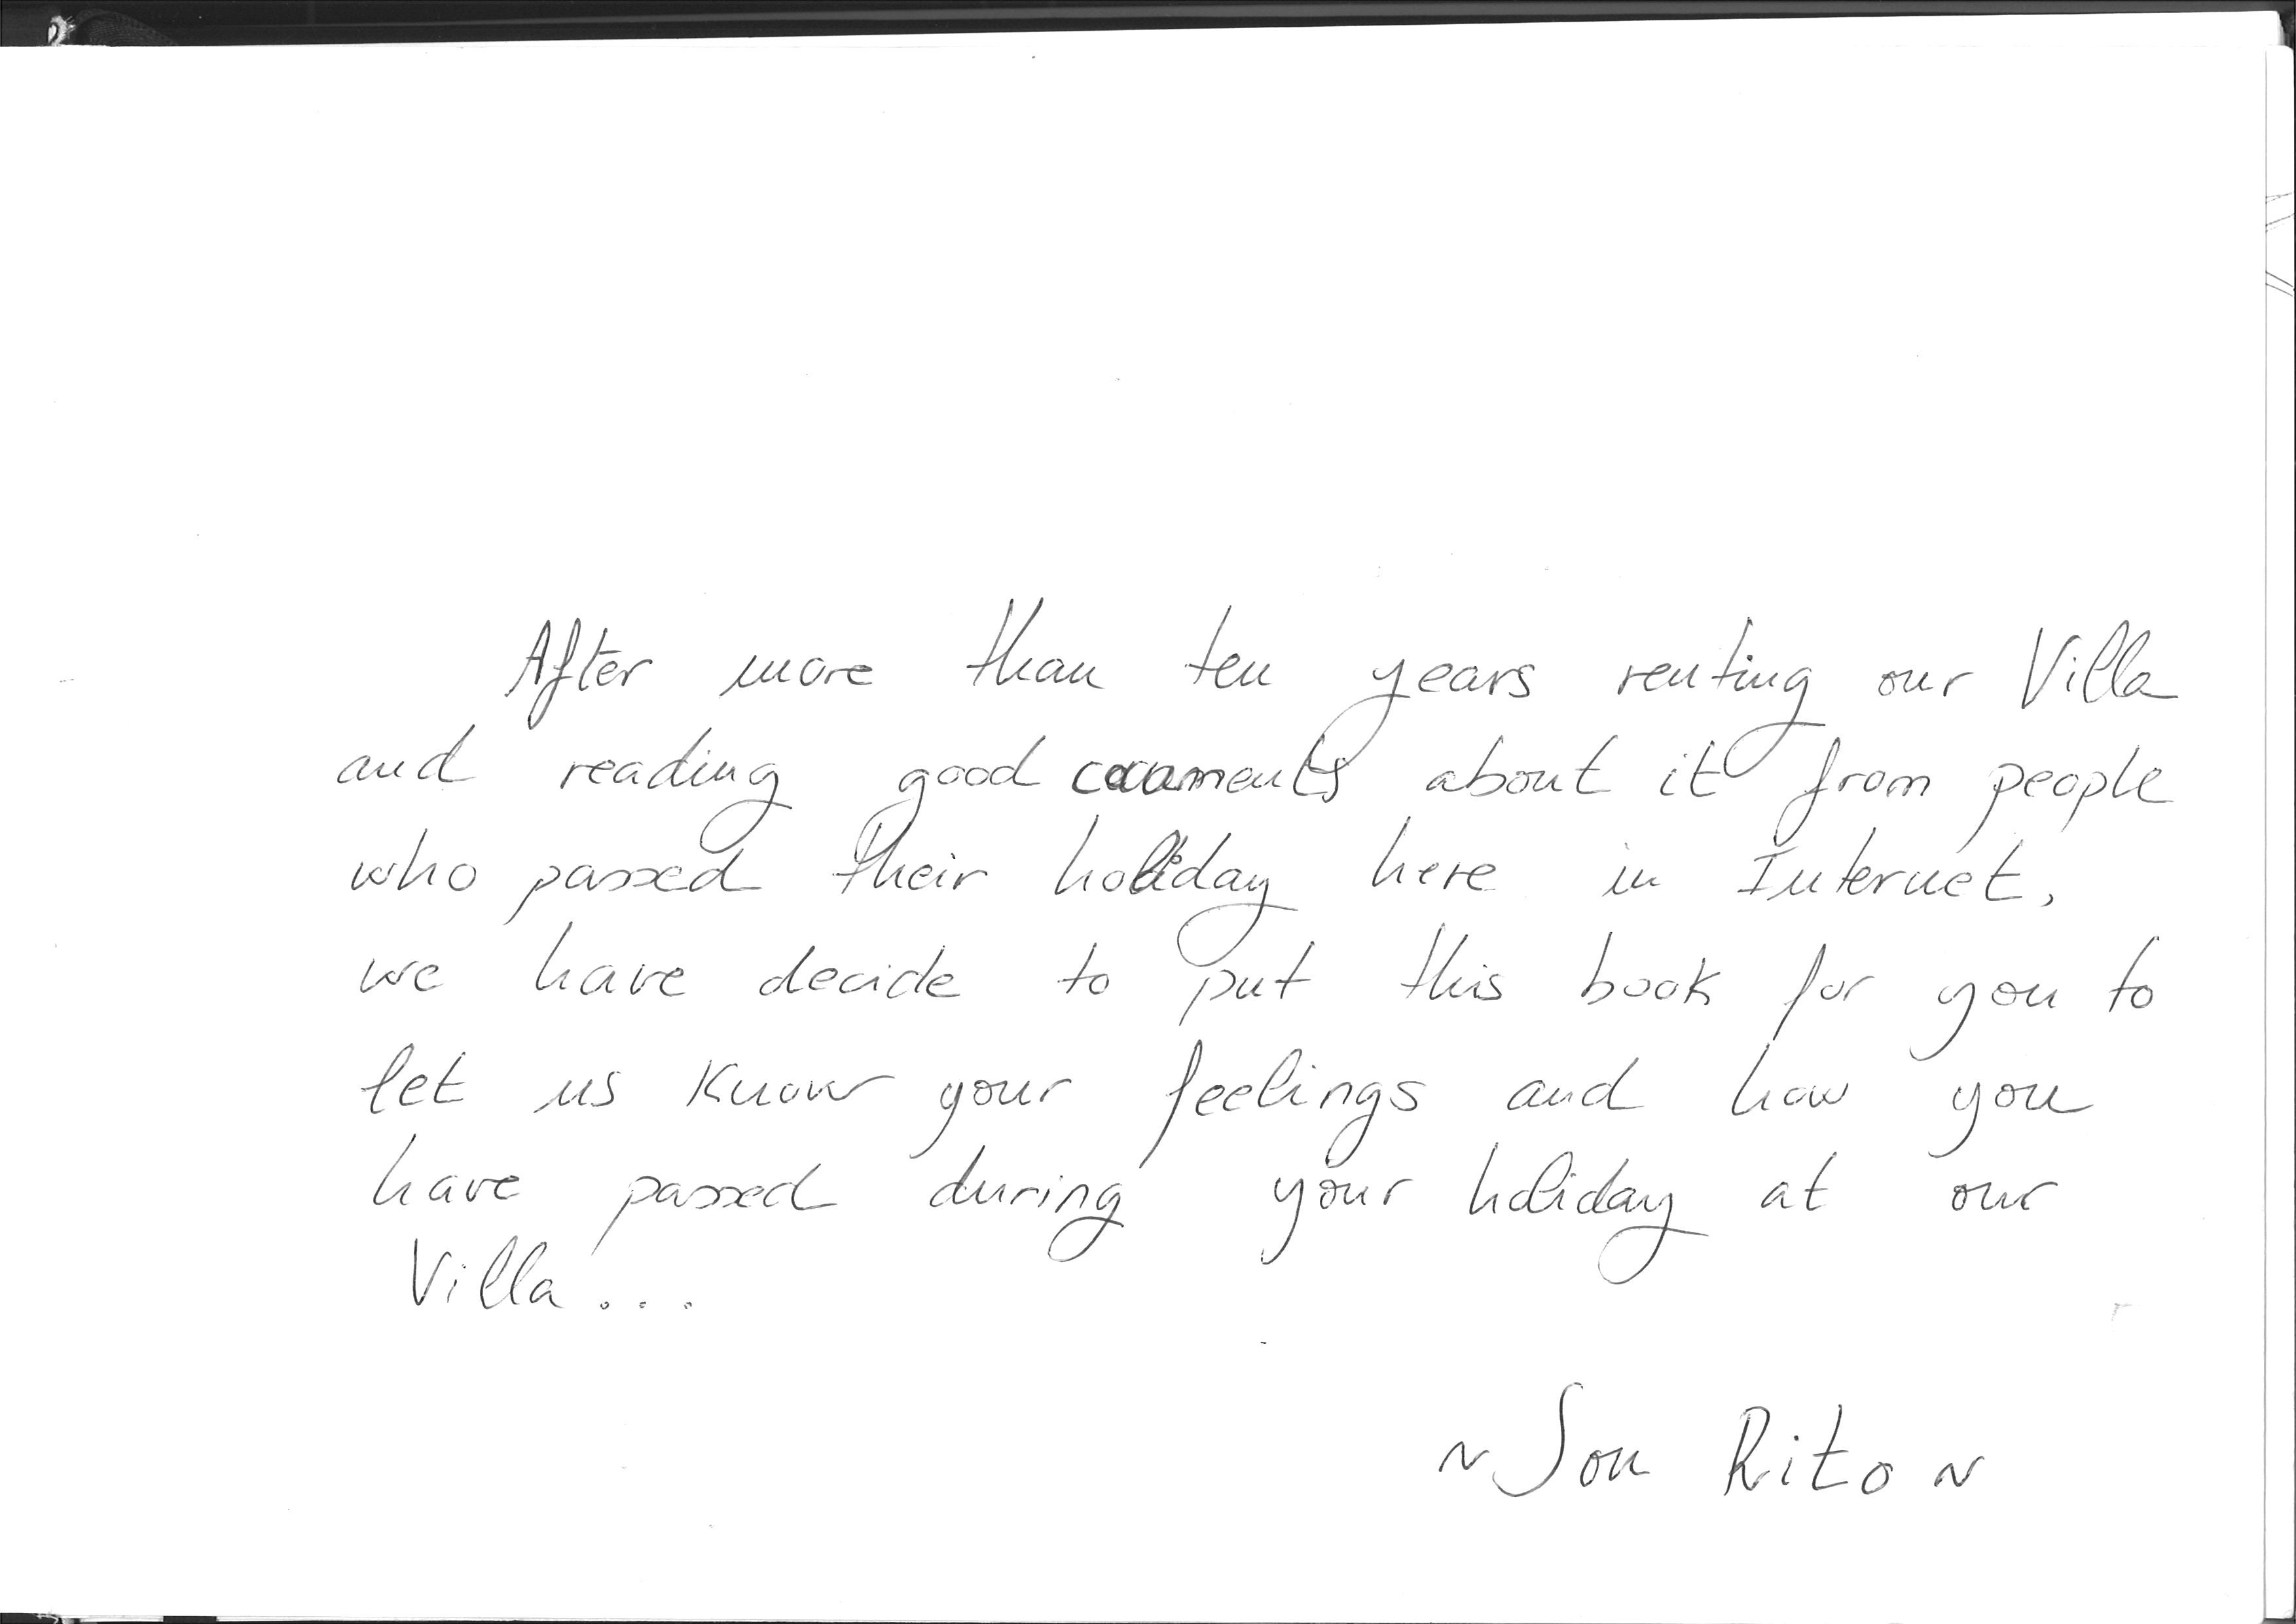 After more than ten years renting our Villa
and reading good comments about it from people
who passed their holiday here in Internet,
we have decide to put this book for you to
let us know your feelings and how you
have passed during your holiday at our
Villa...
~ Son Rito ~